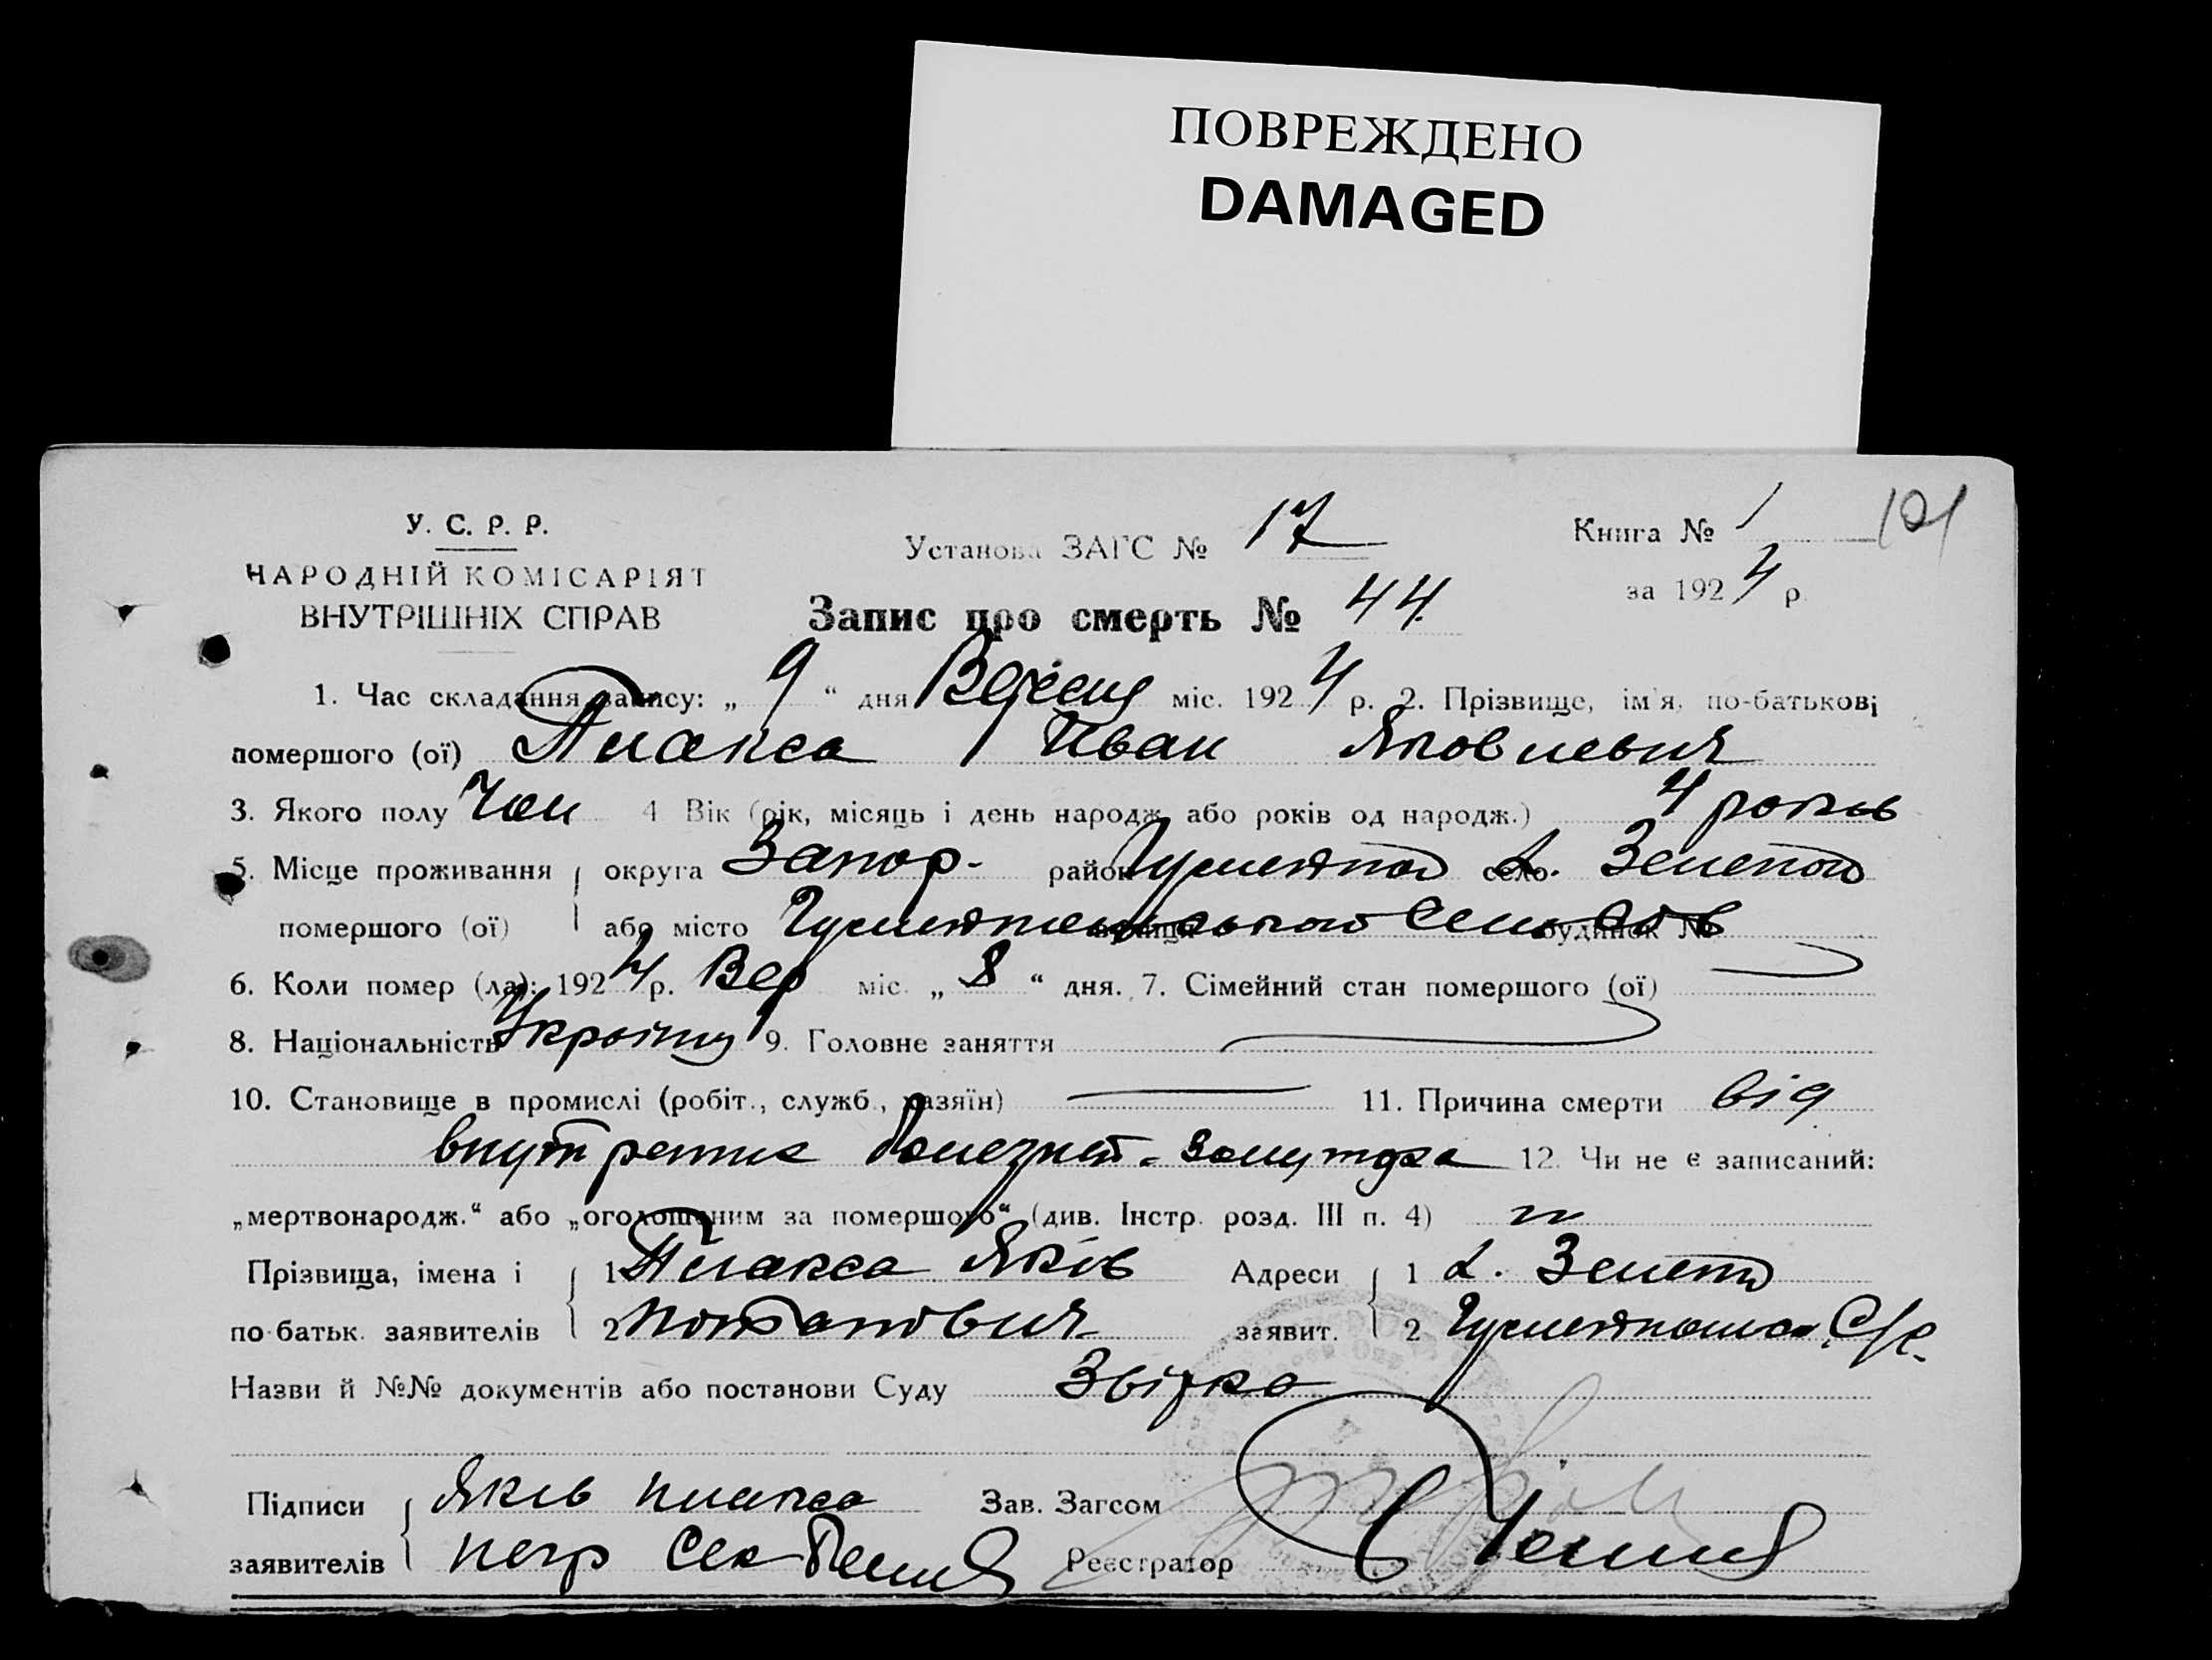 ПОВРЕЖДЕНО
DAMAGED
У. С. Р. Р.
НАРОДНІЙ КОМІСАРІЯТ
ВНУТРІШНІХ СПРАВ
Установа ЗАГС № 17
Книга № 1 101
за 1924 р.
Запис про смерть № 44
1. Час складання запису: „ 9 “ дня Вересня міс. 1924 р. 2. Прізвище, ім'я, по-батькові
помершого (ої) Плакса Иван Яковлевич
3. Якого полу Чол 4 Вік (рік, місяць і день народж. або років од народж.) 4 років
5. Місце проживання округа Запор- район село Х. Зелений
помершого (ої) або місто вулиця будинок №
6. Коли помер (ла): 1924 р. Вер міс. „ 8 “ дня. 7. Сімейний стан помершого (ої)
8. Національність 9. Головне заняття
10. Становище в промислі (робіт., служб., хазяїн) 11. Причина смерти від
12. Чи не є записаний:
„мертвонародж.“ або „оголошеним за померщого“ (див. Інстр. розд. III п. 4)
Прізвища, імена і 1 Плакса Яків Адреси 1 Х.
по-батьк. заявителів 2 Потапович заявит. 2 С/р.
Назви й №№ документів або постанови Суду
Підписи Яків плакса Зав. Загсом
заявителів Реєстратор